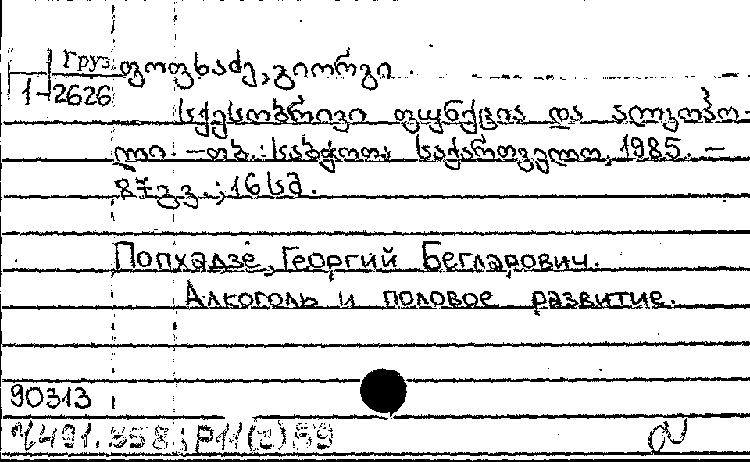 Груз ფოფხაძე, გიორგი.
1-2626
სქესობრივი ფუნქცია და ალკოჰო-
ლი. - თბ.: საბჭოთა საქართველო, 1985. -
87გვ.; 16 სმ.
Попхадзе, Георгий Бегларович.
Алкоголь и половое развитие.
90313
Ч491.358; Р11(2)59